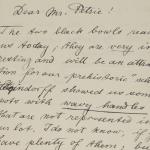 Dear Mr. Petrie!
The two black bowls rea
us today, they are very in
resting and will be an attra
tion for our "prehistoric"
showed us som
pots with wavy handles
that are not represented in
our lot. I do not know, if
have plenty of them; bu